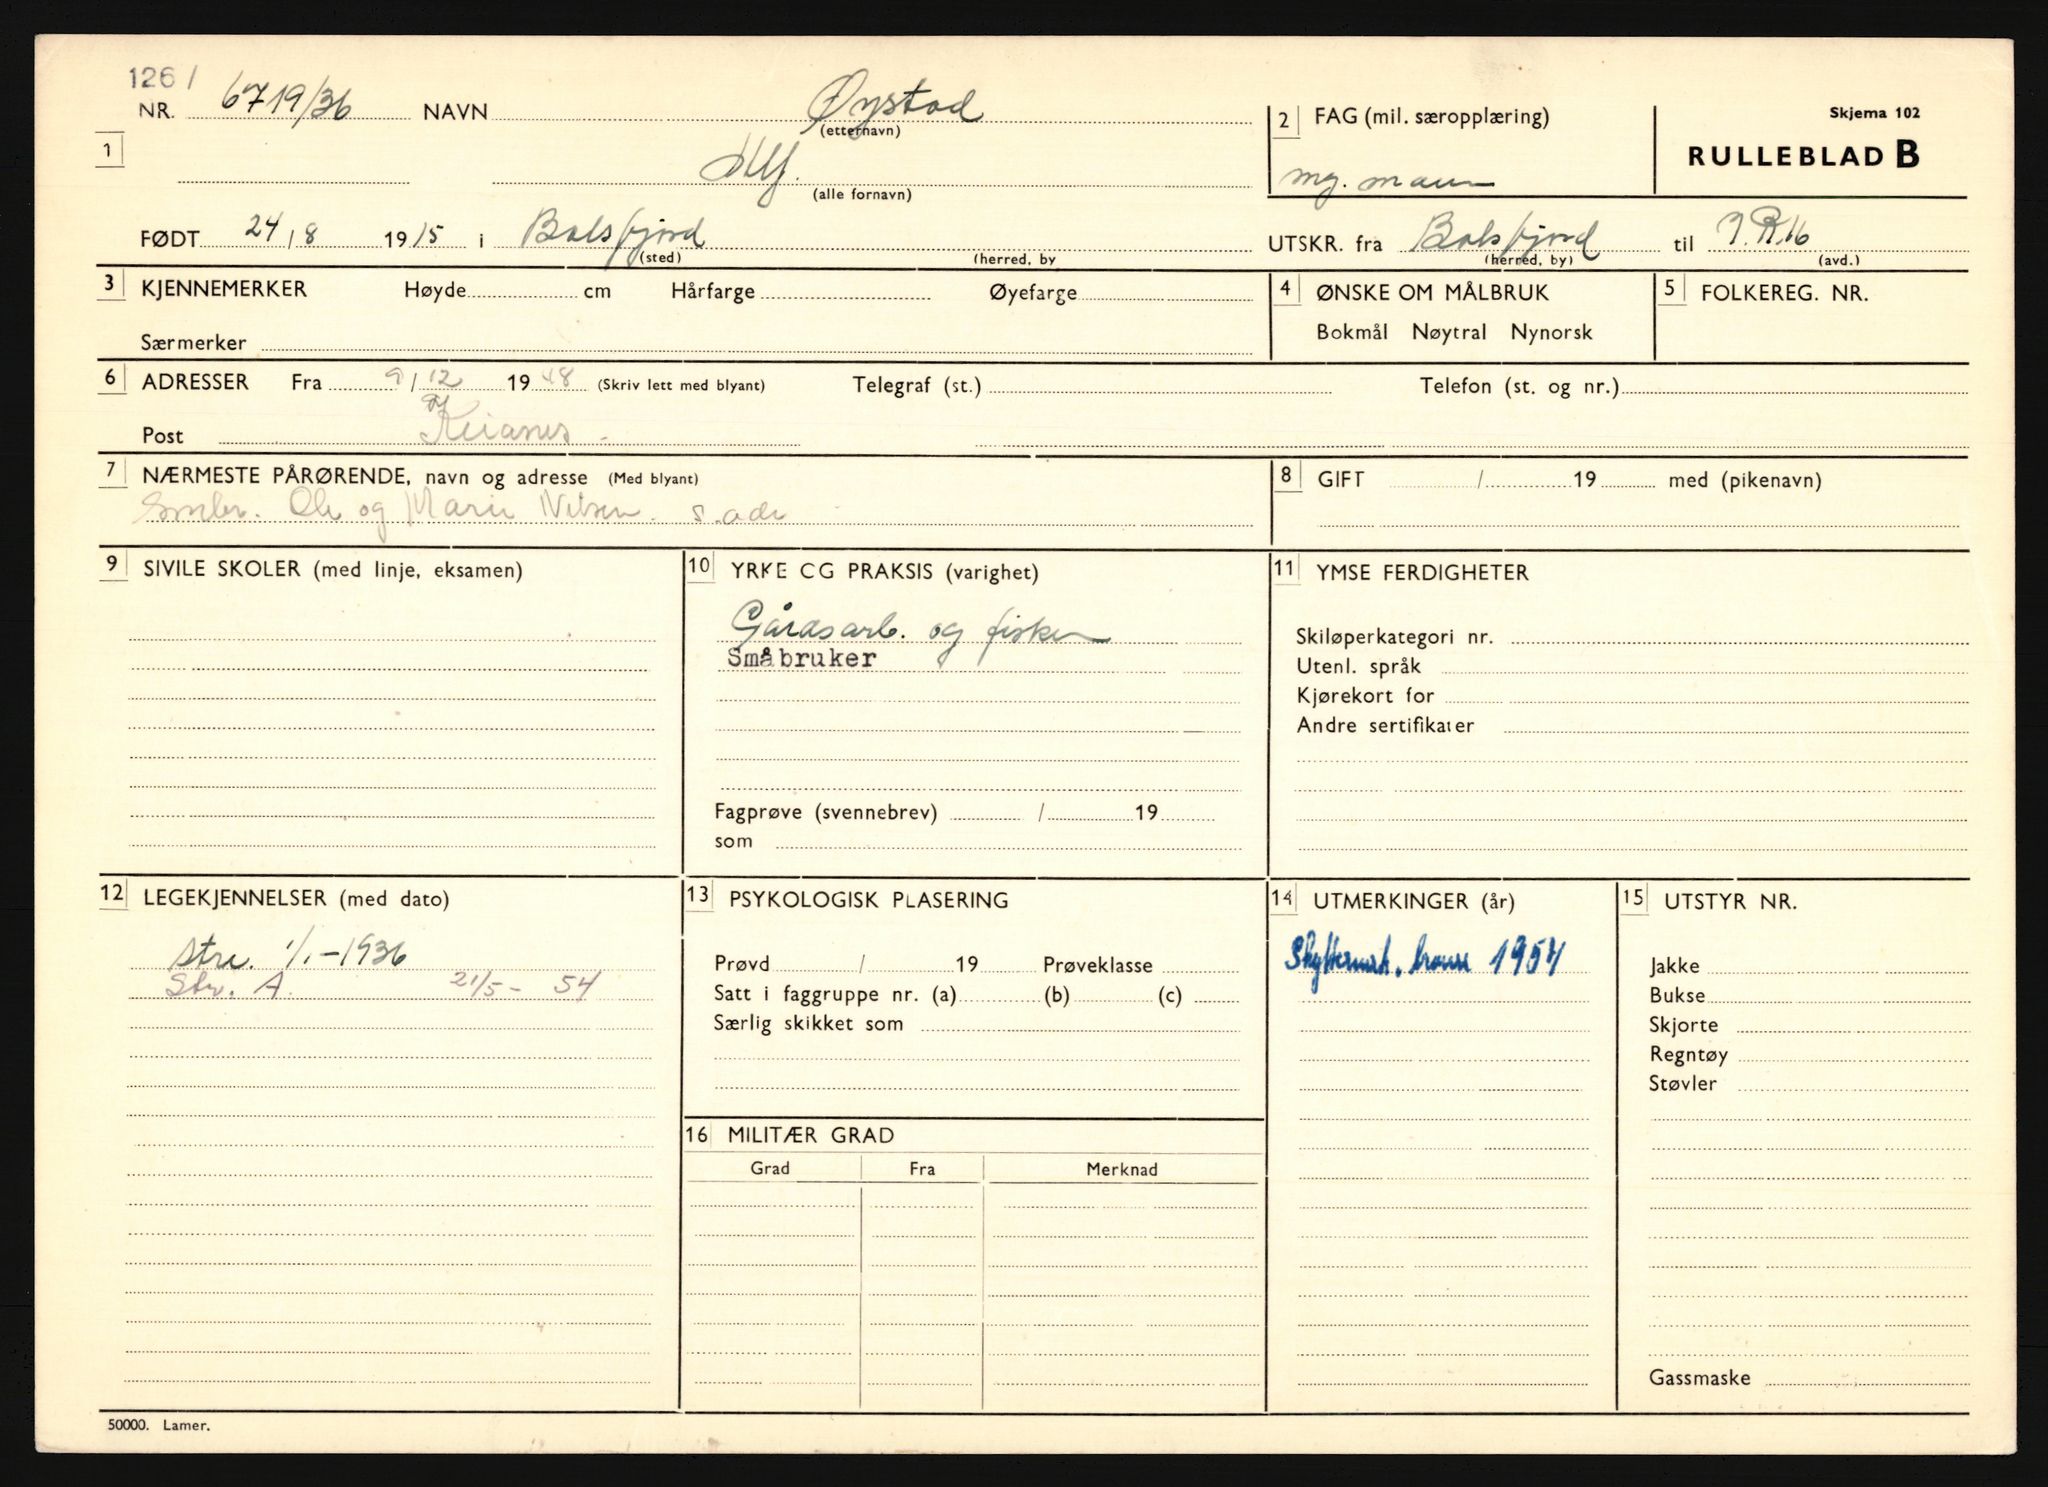 126 /
NR. 6719/36 NAVN Øystad
(etternavn)
1 Ulf.
(alle fornavn)
2 FAG (mil. særopplæring)
mg. mann
Skjema 102
RULLEBLAD B
FØDT 24/8 1915 i Balsfjord
(sted) (herred, by
UTSKR. fra Balsfjord til I.R.16
(herred, by) (avd.)
3 KJENNEMERKER Høyde cm Hårfarge Øyefarge
Særmerker
4 ØNSKE OM MÅLBRUK
Bokmål Nøytral Nynorsk
5 FOLKEREG. NR.
6 ADRESSER Fra 9/12 1948 (Skriv lett med blyant) Telegraf (st.) Telefon (st. og nr.)
Post
7 NÆRMESTE PÅRØRENDE, navn og adresse (Med blyant)
Ole og Marie Nilsen s. adr
8 GIFT / 19 med (pikenavn)
9 SIVILE SKOLER (med linje, eksamen)
10 YRKE CG PRAKSIS (varighet)
Gårdsarb. og fisker
Småbruker
Fagprøve (svennebrev) / 19
som
11 YMSE FERDIGHETER
Skiløperkategori nr.
Utenl. språk
Kjørekort for
Andre sertifikater
12 LEGEKJENNELSER (med dato)
Stre. 1/1-1936
Str. A. 21/5 - 54
13 PSYKOLOGISK PLASERING
Prøvd / 19 Prøveklasse
Satt i faggruppe nr. (a) (b) (c)
Særlig skikket som
14 UTMERKINGER (år)
Skyttermrk. bronse 1954
15 UTSTYR NR.
Jakke
Bukse
Skjorte
Regntøy
Støvler
Gassmaske
16 MILITÆR GRAD
Grad Fra Merknad
50000. Lamer.